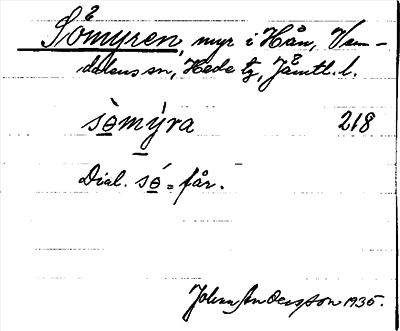 Sömyren, myr i Hån, Vem-
dalens sn, Hede tg, Jämtl. l.
sòmýra 218
Dial. só = får.
John Andersson 1935.